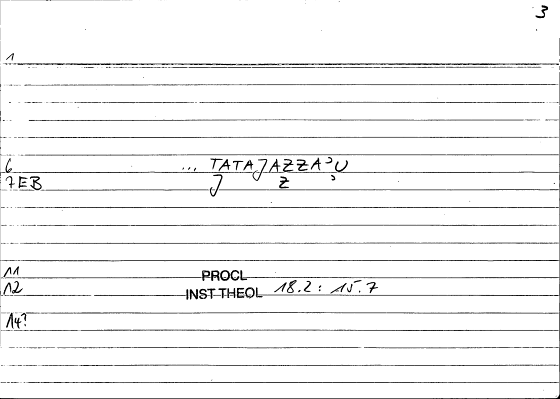 3
1
6 ... TATAJAZZAʾU
7EB J Z ʾ
11 PROCL
12 INST THEOL 18.2: 15.7
14?